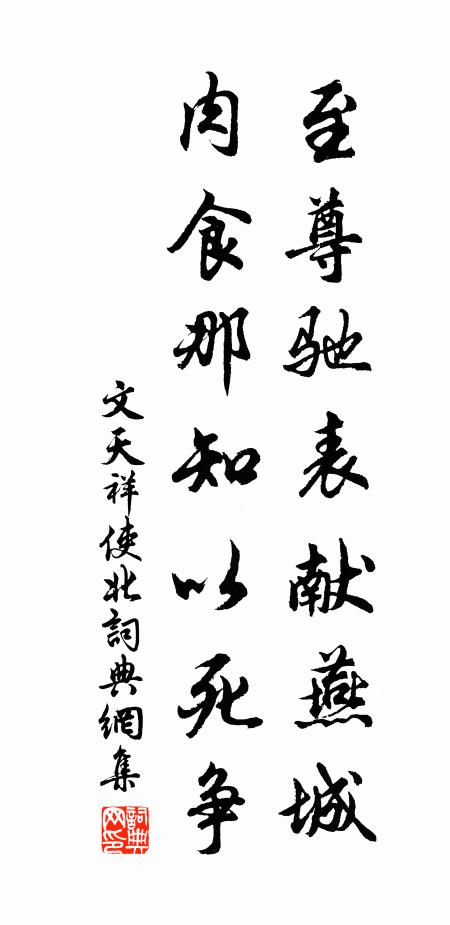 至尊驰表献燕城
肉食那知以死争
文天祥使北詞典網集
詞典网印